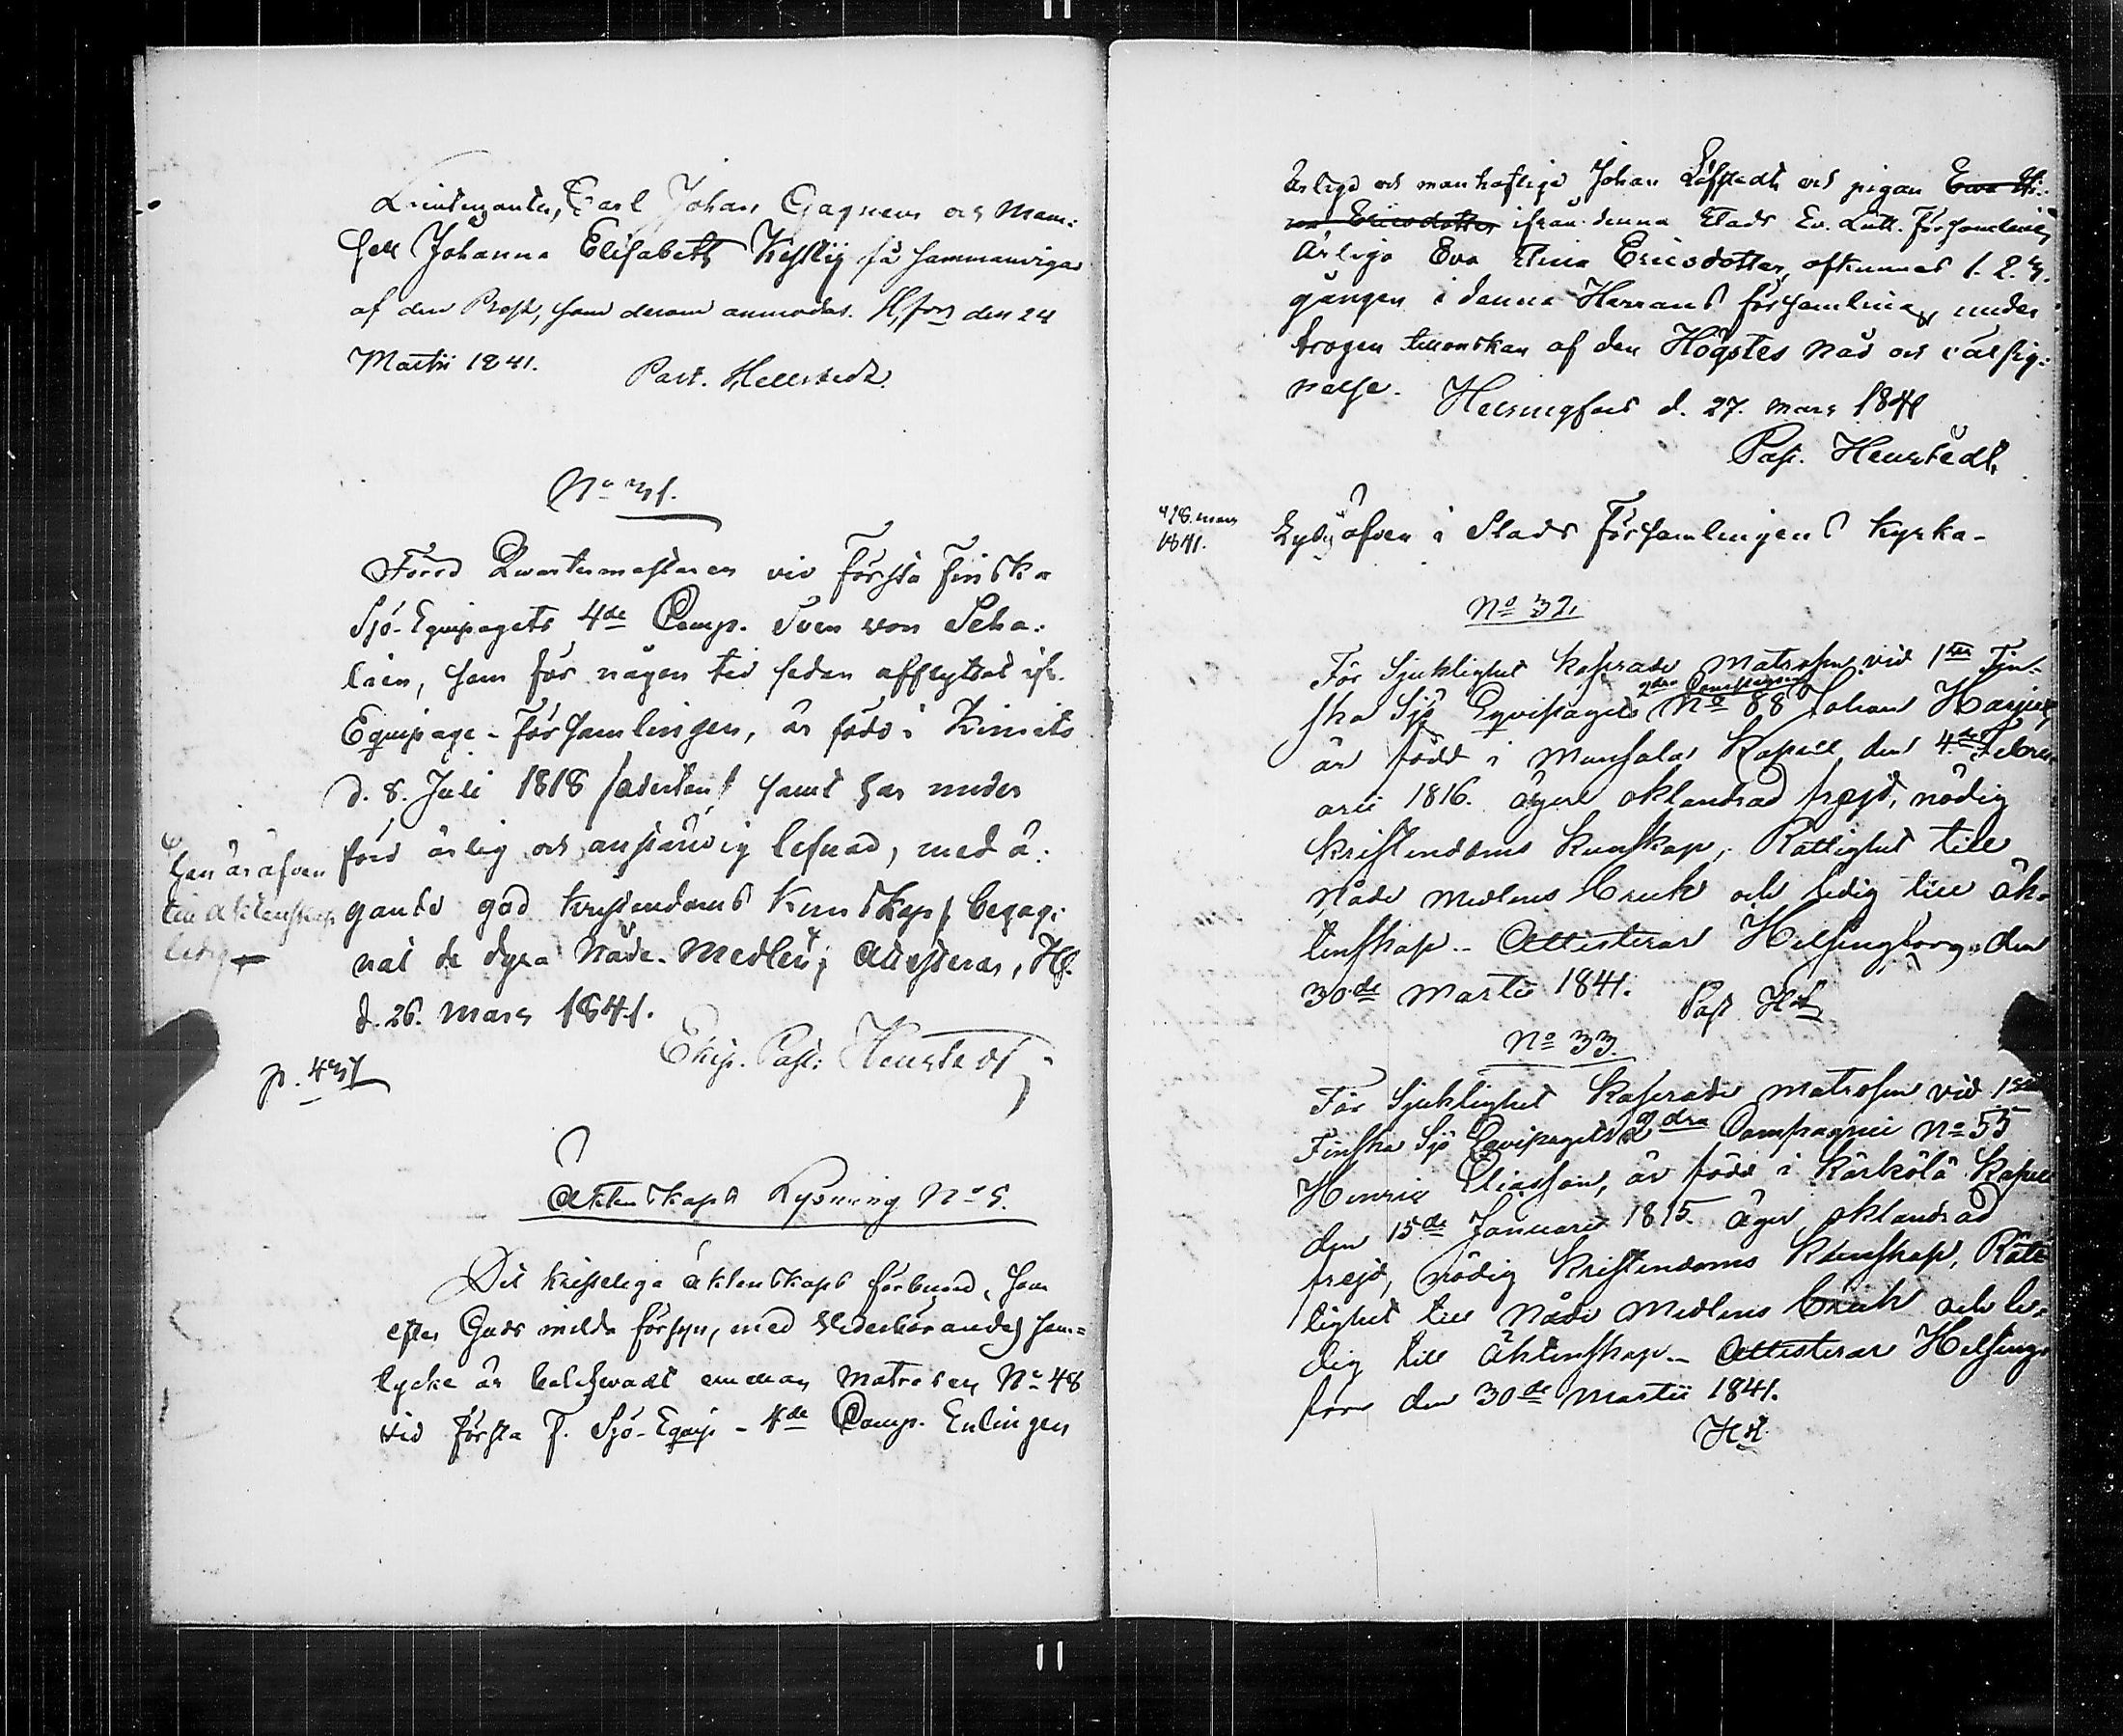 Lieutenanten, Carl Johan Gagneur och Mam:
sell Johanna Elisabeth Keßlig få sammanvigas
af den Prest, som derom anmodas. H,fors den 24
Martii 1841. Past. Hellstedt.
No 31.
Förre Qvartermästaren vid Första Finska
Sjö-Equipagets 4de Comp. Sven von Scha:
lien, som för någon tid sedan afflyttat ifr.
Equipage-Församlingen, är född i Kimito
d. 8. Juli 1818 /aderton/ samt har under
förd ärlig och anständig lefnad, med ä:
gande god kristendoms kunskap, begag:
nat de dyra Nåde-Medlen; Attesteras, Hf.
d. 26. Mars 1841.
Ekip. Past: Hellstedt
Han är äfven
till äktenskap
ledig
p. 431
Äktenskaps Lysning No 5.
Det kristeliga äktenskaps förbund, som
efter Guds milda försyn, med Vederbörandes sam=
tycke är beslutadt emellan Matrosen No 48
vid första F. Sjö-Equip - 4de Comp. Enlingen
Ärlige och manhaftige Johan Löfstedt och pigan Eva Sti:
na Ericsdotter ifrån denna Stads Ev. Luth. Församling
Ärliga Eva Stina Ericsdotter, afkunnas 1. 2. 3.
gången i denna Herrans församling, under
trogen tillönskan af den Högstes nåd och välsig:
nelse. Helsingfors d. 27. Mars 1841
Past. Hellstedt.
d 28. Mars
1841.
Lyses äfven i Stads Församlingens kyrka-
No 32.
För Sjuklighet kasserade Matrosen vid 1sta Fin-
ska Sjö Eqvipagets 2dra Compagni No 88 Johan Harju
är född i Munsala Kapell den 4de Febru
arii 1816. äger oklandrad frejd, nödig
kristendoms kunskap, Rättighet till
Nåde medlens bruk och ledig till äk-
tenskap.- Attesterar Helsingborg den
30de Martii 1841. Past Hdt
No 33.
För Sjuklighet kasserade Matrosen vid 1sta
Finska Sjö Eqvipagets 2dra Compagnie No 55
Henric Eliasson, är född i Kärkölä Kapell
den 15de Januari 1815. äger oklandrad
frejd, nödig Kristendoms Kunskap, Rätt
tighet till Nåde Medlens bruk och le-
dig till Äktenskap.- Attesterar Helsing-
fors den 30de Martii 1841.
Hdt